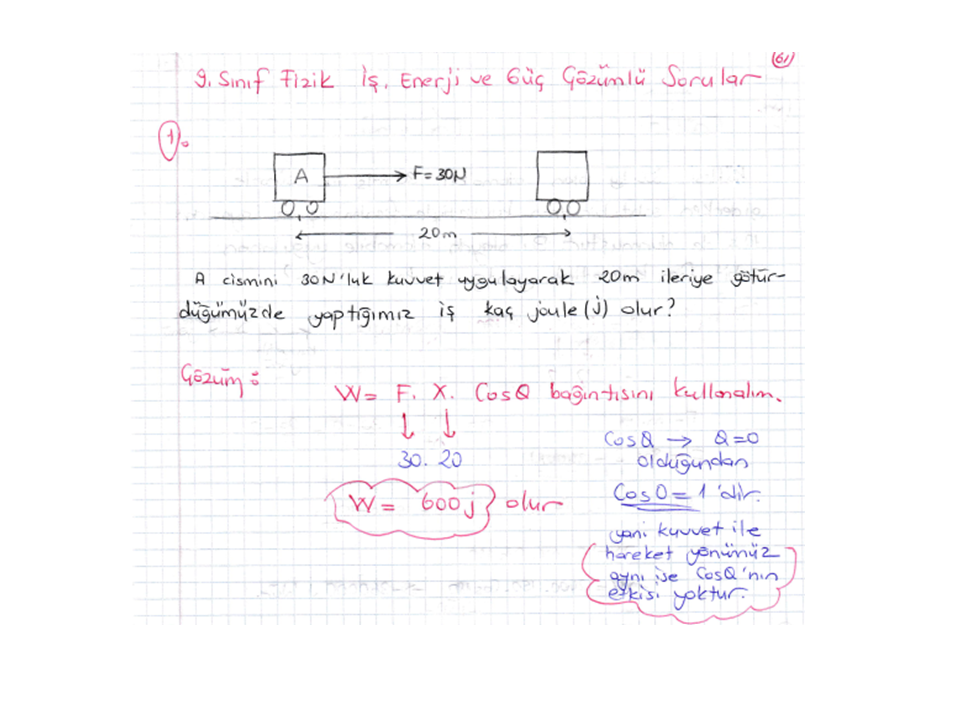 61
9. Sınıf Fizik İş, Enerji ve Güç Çözümlü Sorular
1.
A F=30N
20m
A cismini 30N'luk kuvvet uygulayarak 20m ileriye götür-
düğümüzde yaptığımız iş kaç joule (j) olur?
Çözüm:
W= F. X. CosQ bağıntısını kullanalım.
30. 20
W= 600j olur
CosQ → Q=0
olduğundan
Cos0=1'dir.
yani kuvvet ile
hareket yönünüz
aynı ise CosQ'nın
etkisi yoktur.